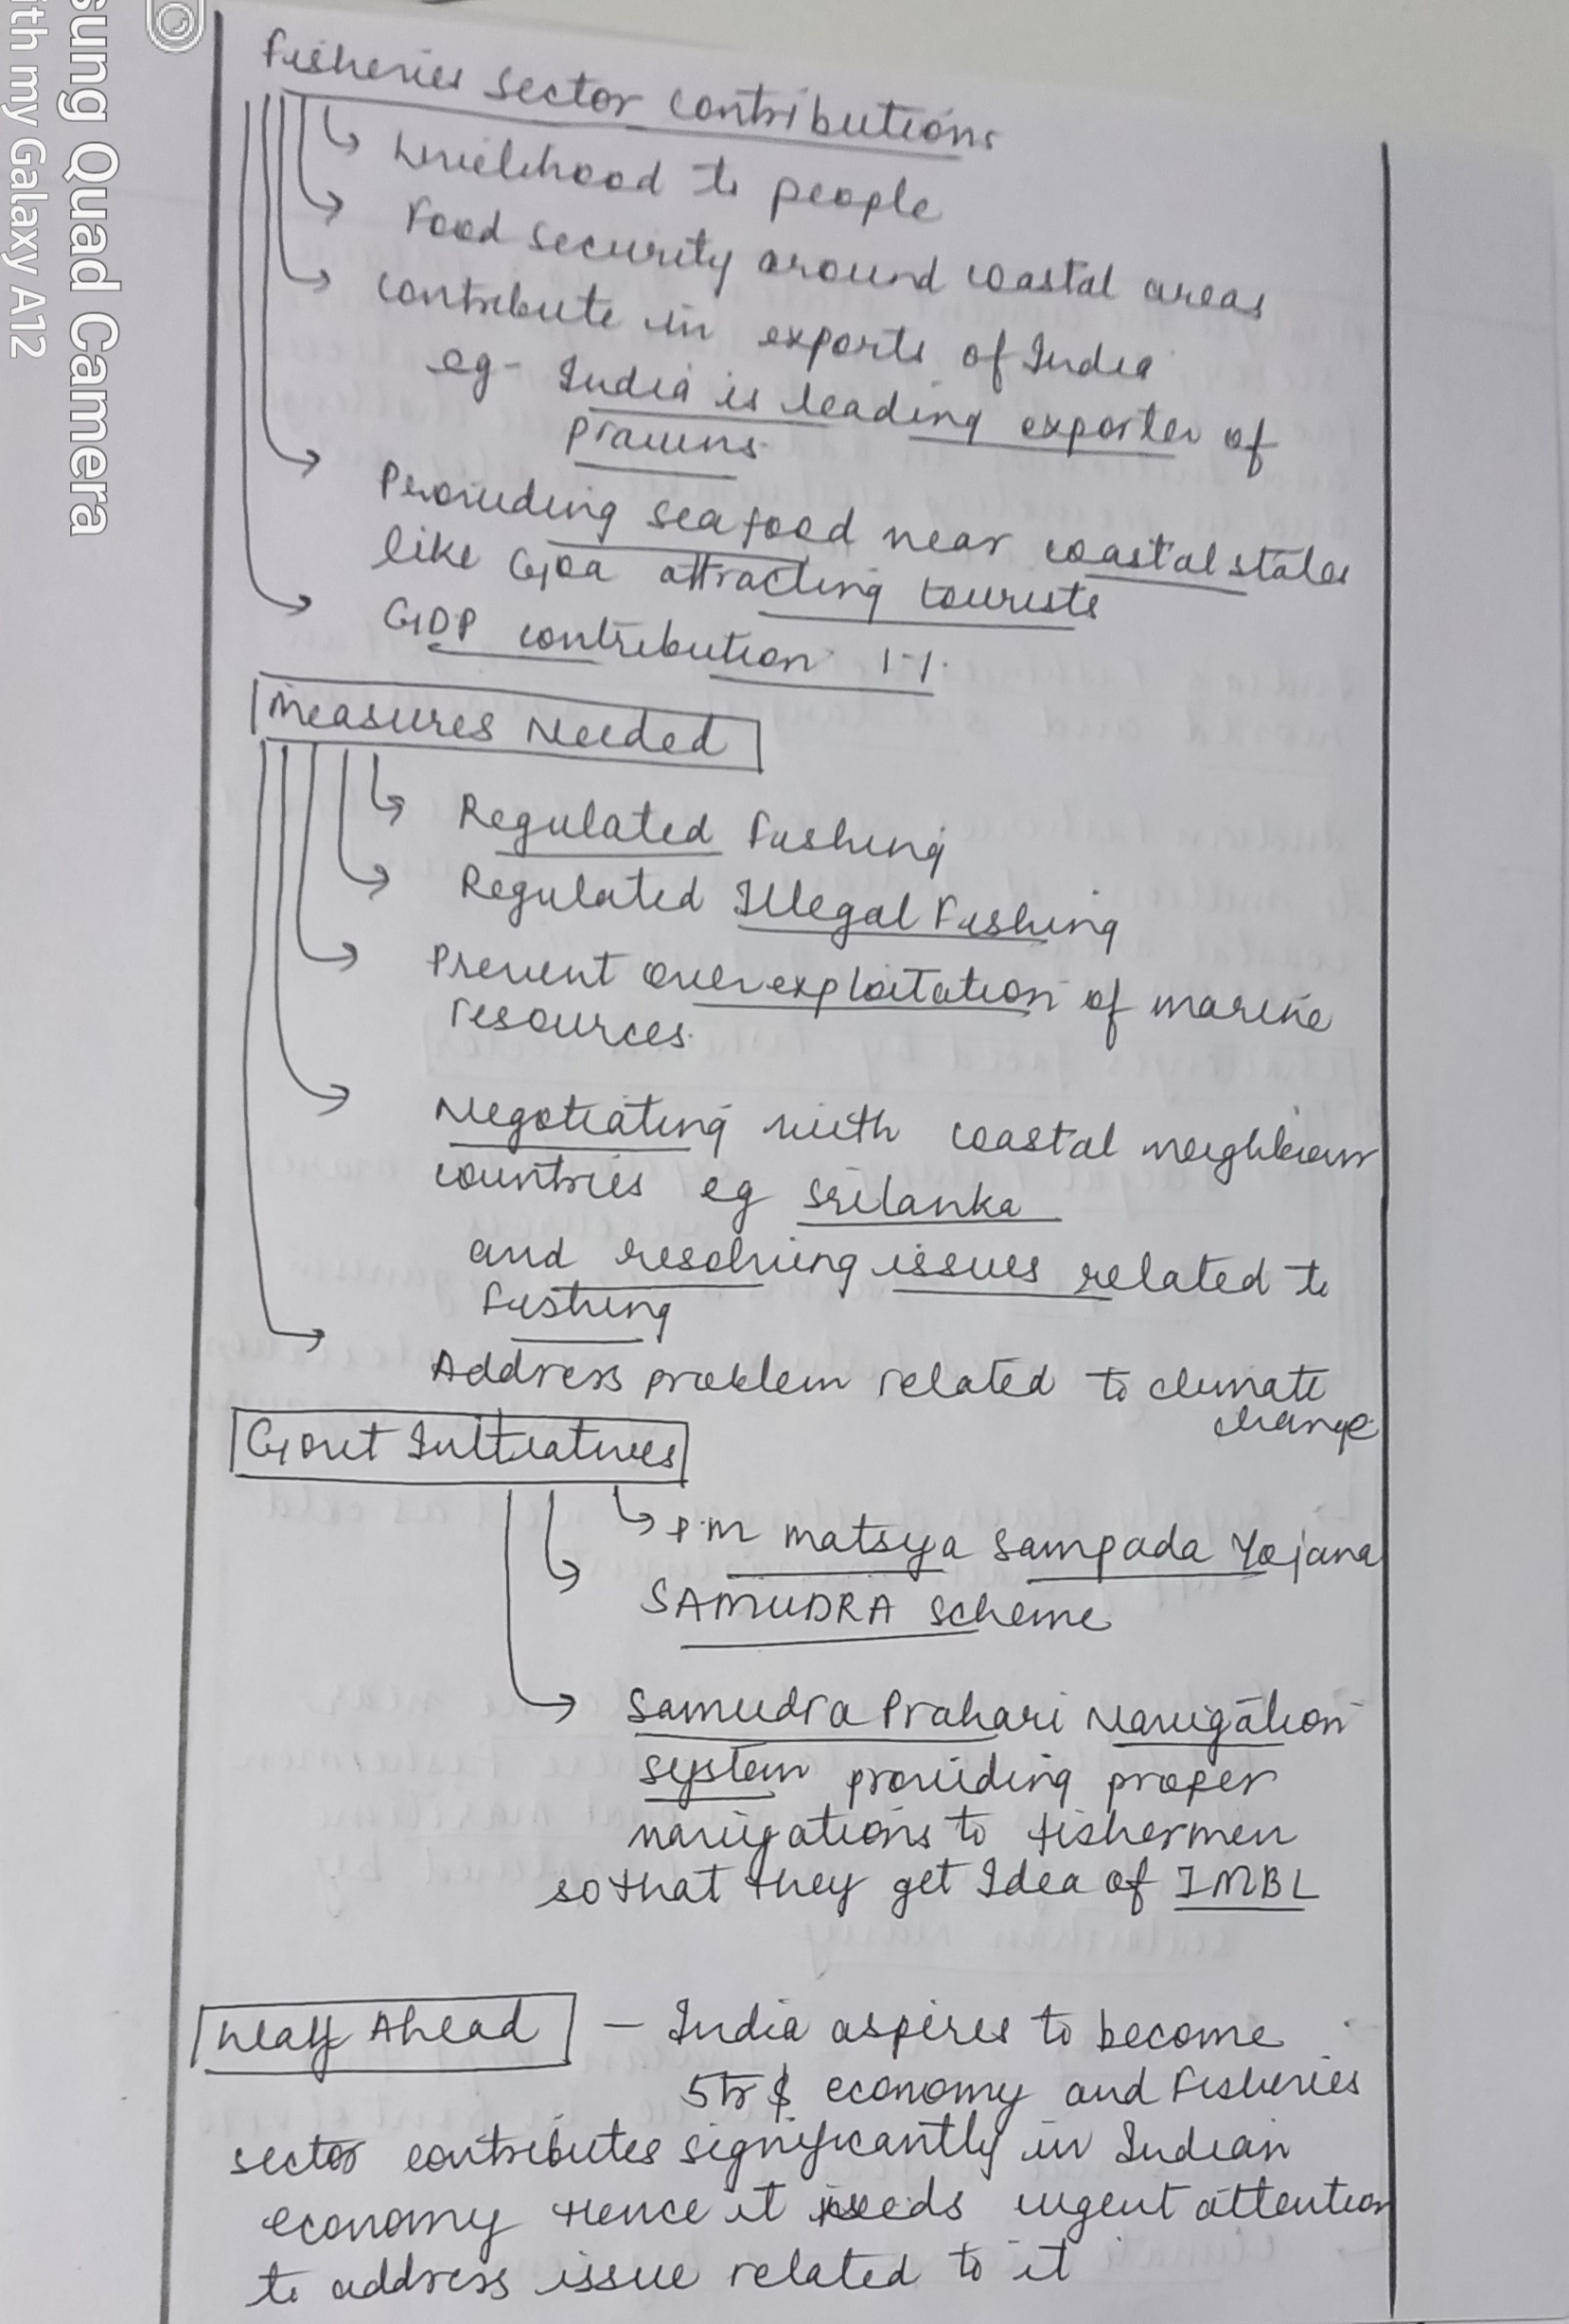 Fisheries Sector Contributions
Livelihood to people
Food security around coastal areas
contribute in exports of India
eg- India is leading exporter of
prawns.
Providing sea food near coastal states
like Goa attracting tourists
GDP contribution 1%
Measures Needed
Regulated Fishing
Regulated Illegal Fishing
Prevent over exploitation of marine
resources.
Negotiating with coastal neighbour
countries eg Srilanka
and resolving issues related to
fishing
Address problem related to climate
change
Govt Initiatives
P.M Matsya Sampada Yojana
SAMUDRA Scheme
Samudra Prahari Navigation
system providing proper
navigations to fishermen
so that they get Idea of IMBL
Way Ahead - India aspires to become
5tr $ economy and Fisheries
sector contributes significantly in Indian
economy Hence it needs urgent attention
to address issue related to it
sung Quad Camera
ith my Galaxy A12